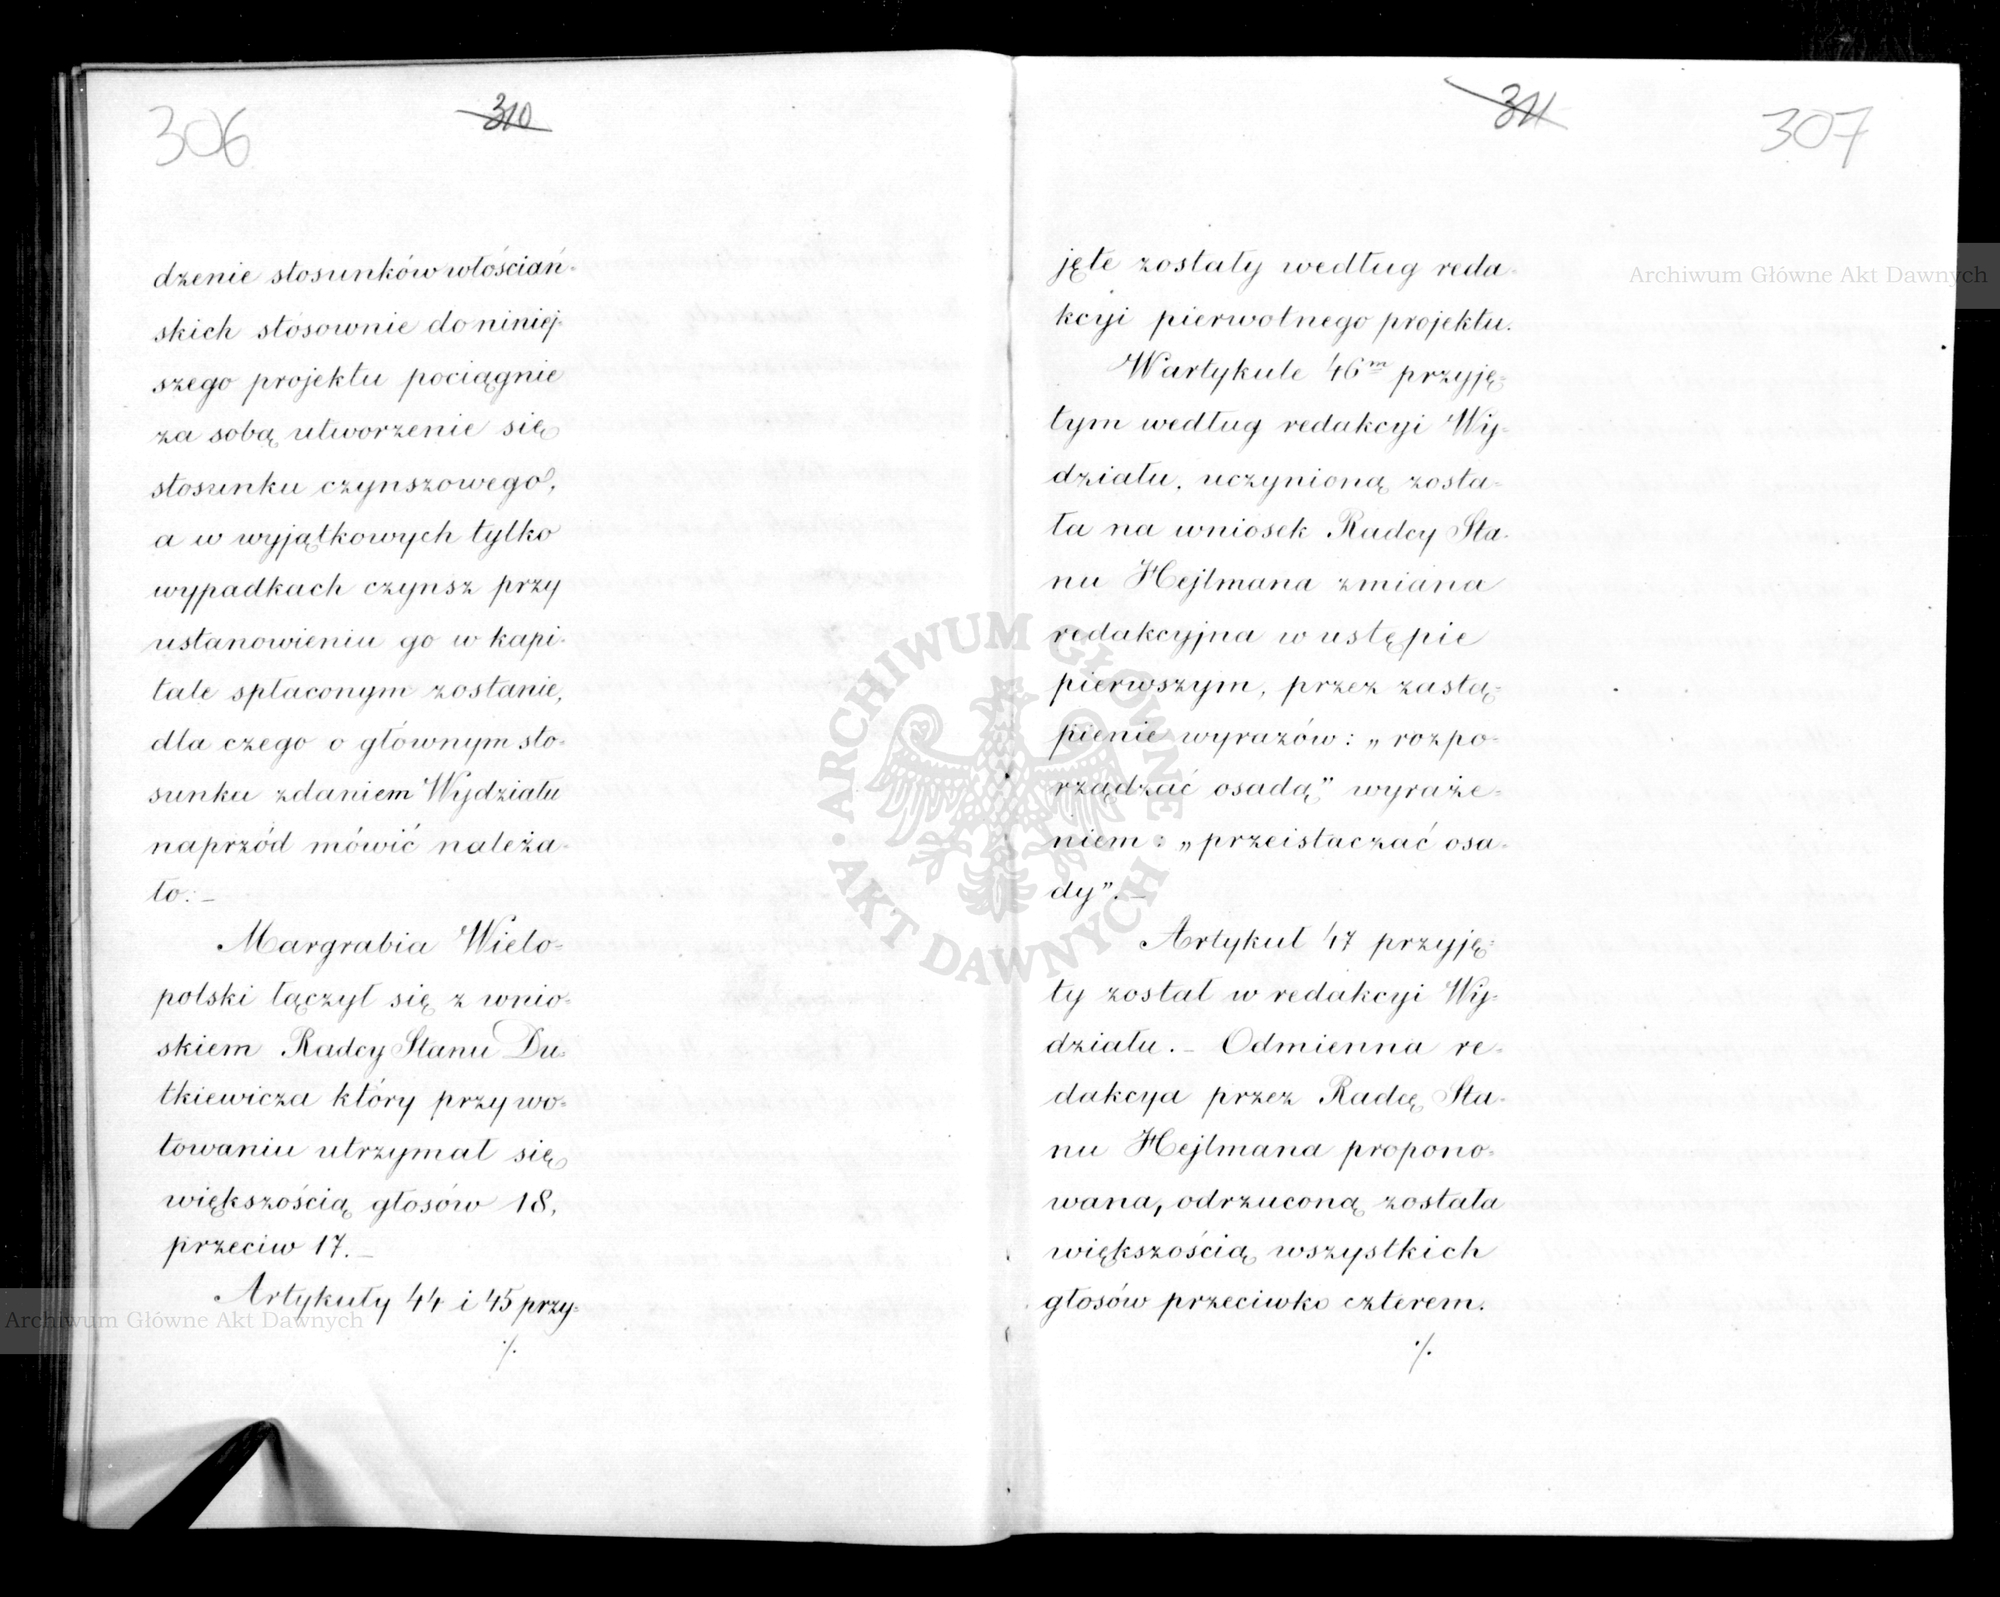 306
310
dzenie stosunków włościań-
skich stósownie do niniej-
szego projektu pociągnie
za sobą utworzenie się
stosunku czynszowego,
a w wyjątkowych tylko
wypadkach czynsz przy
ustanowieniu go w kapi-
tale spłaconym zostanie,
dla czego o głównym sto-
sunku zdaniem Wydziału
naprzód mówić należa-
ło: –
Margrabia Wielo-
polski łączył się z wnio-
skiem Radcy Stanu Du-
tkiewicza który przy wo-
towaniu utrzymał się
większością głosów 18,
przeciw 17. –
Artykuły 44 i 45 przy-
./.
311
307
jęte zostały według reda-
kcyi pierwotnego projektu.
W artykule 46m przyję-
tym według redakcyi Wy-
działu, uczynioną zosta-
ła na wniosek Radcy Sta-
nu Hejlmana zmiana
redakcyjna w ustępie
pierwszym, przez zastą-
pienie wyrazów: „rozpo-
rządzać osadą” wyraże-
niem: „przeistaczać osa-
dy”. –
Artykuł 47 przyję-
ty został w redakcyi Wy-
działu. – Odmienna re-
dakcya przez Radcę Sta-
nu Hejlmana propono-
wana, odrzuconą została
większością wszystkich
głosów przeciwko czterem.
./.
Archiwum Główne Akt Dawnych
ARCHIWUM GŁÓWNE AKT DAWNYCH
Archiwum Główne Akt Dawnych